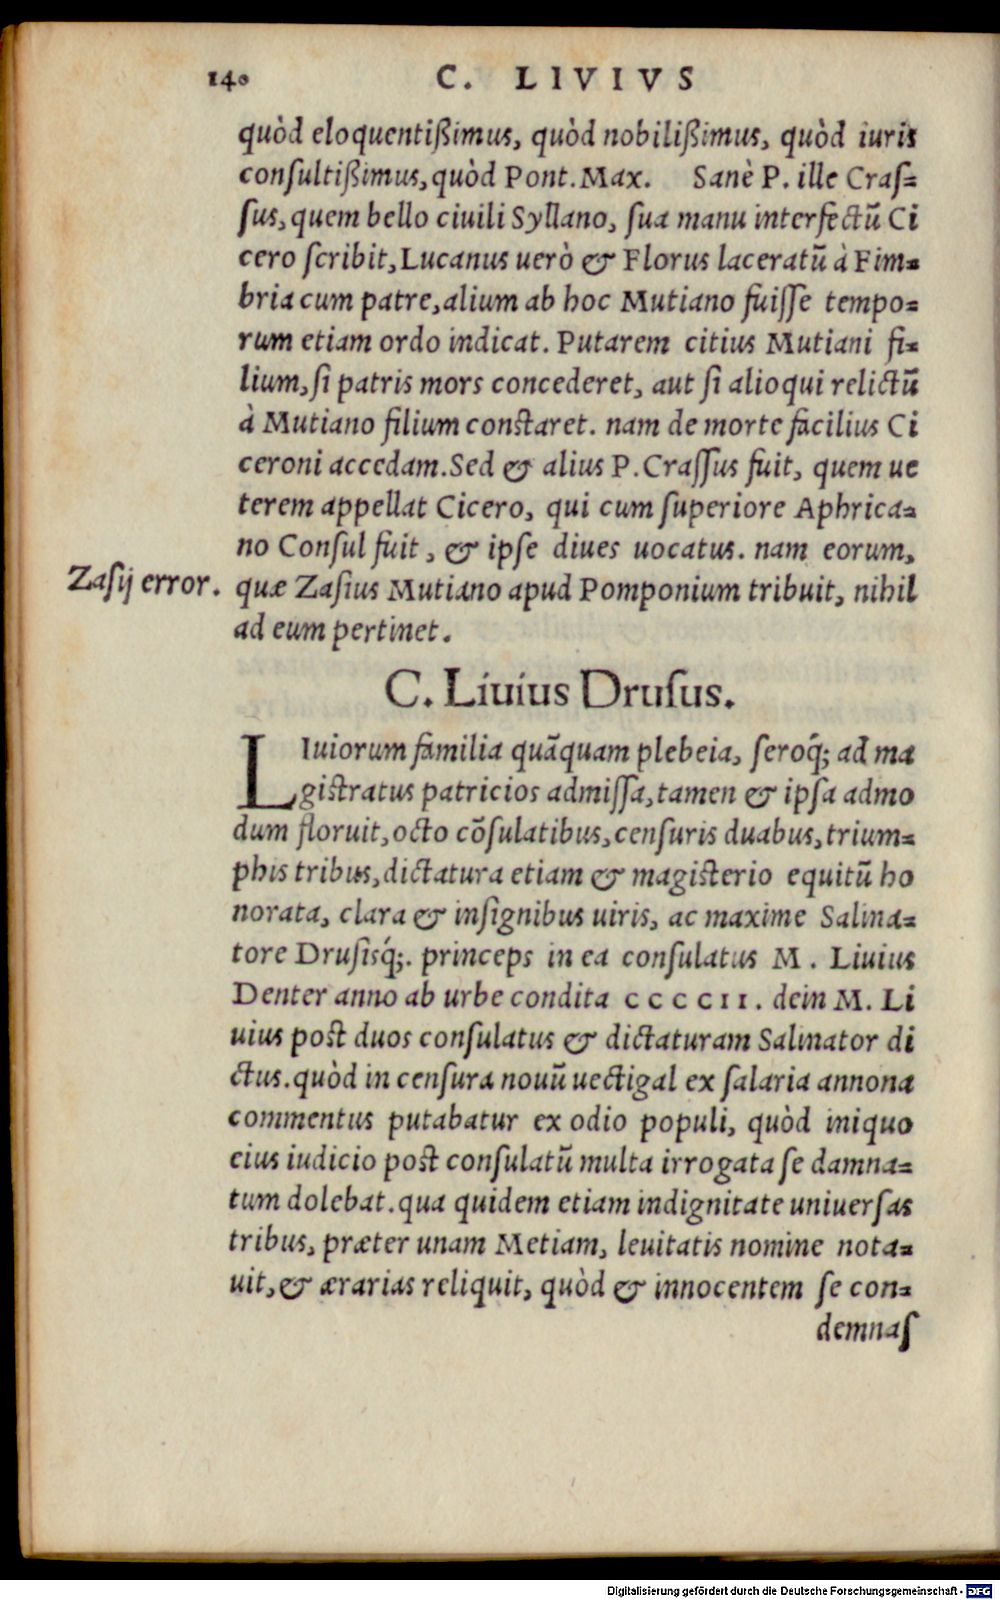 140 C. LIVIVS
quòd eloquentißimus, quòd nobilißimus, quòd iuris
conſultißimus, quòd Pont. Max. Sanè P. ille Craſ=
ſus, quem bello ciuili Syllano, ſua manu interfectũ Ci
cero ſcribit, Lucanus uerò & Florus laceratũ à Fim=
bria cum patre, alium ab hoc Mutiano fuiſſe tempo=
rum etiam ordo indicat. Putarem citius Mutiani fi=
lium, ſi patris mors concederet, aut ſi alioqui relictũ
à Mutiano filium conſtaret. nam de morte facilius Ci
ceroni accedam. Sed & alius P. Craſſus fuit, quem ue
terem appellat Cicero, qui cum ſuperiore Aphrica=
no Conſul fuit, & ipſe diues uocatus. nam eorum,
Zaſij error.
quæ Zaſius Mutiano apud Pomponium tribuit, nihil
ad eum pertinet.
C. Liuius Druſus.
LIuiorum familia quãquam plebeia, ſeroq́; ad ma
giſtratus patricios admiſſa, tamen & ipſa admo
dum floruit, octo cõſulatibus, cenſuris duabus, trium=
phis tribus, dictatura etiam & magiſterio equitũ ho
norata, clara & inſignibus uiris, ac maxime Salina=
tore Druſisq́;. princeps in ea conſulatus M. Liuius
Denter anno ab urbe condita CCCCII. dein M. Li
uius poſt duos conſulatus & dictaturam Salinator di
ctus. quòd in cenſura nouũ uectigal ex ſalaria annona
commentus putabatur ex odio populi, quòd iniquo
eius iudicio poſt conſulatũ multa irrogata ſe damna=
tum dolebat. qua quidem etiam indignitate uniuerſas
tribus, præter unam Metiam, leuitatis nomine nota=
uit, & ærarias reliquit, quòd & innocentem ſe con=
demnaſ
Digitalisierung gefördert durch die Deutsche Forschungsgemeinschaft - DFG